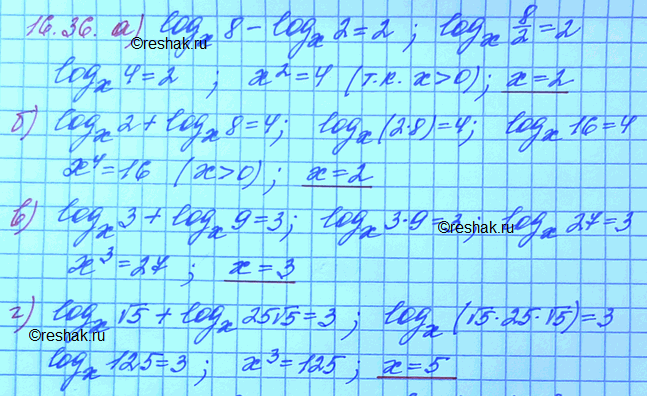 16.36. а) logₓ 8 - logₓ 2 = 2 ; logₓ 8/2 = 2
©reshak.ru
logₓ 4 = 2 ; x² = 4 (т.к. x > 0) ; x = 2
б) logₓ 2 + logₓ 8 = 4 ; logₓ (2·8) = 4 ; logₓ 16 = 4
x⁴ = 16 (x > 0) ; x = 2
в) logₓ 3 + logₓ 9 = 3 ; logₓ 3·9 = 3 ; logₓ 27 = 3
©reshak.ru
x³ = 27 ; x = 3
г) logₓ √5 + logₓ 25√5 = 3 ; logₓ (√5·25·√5) = 3
©reshak.ru
logₓ 125 = 3 ; x³ = 125 ; x = 5